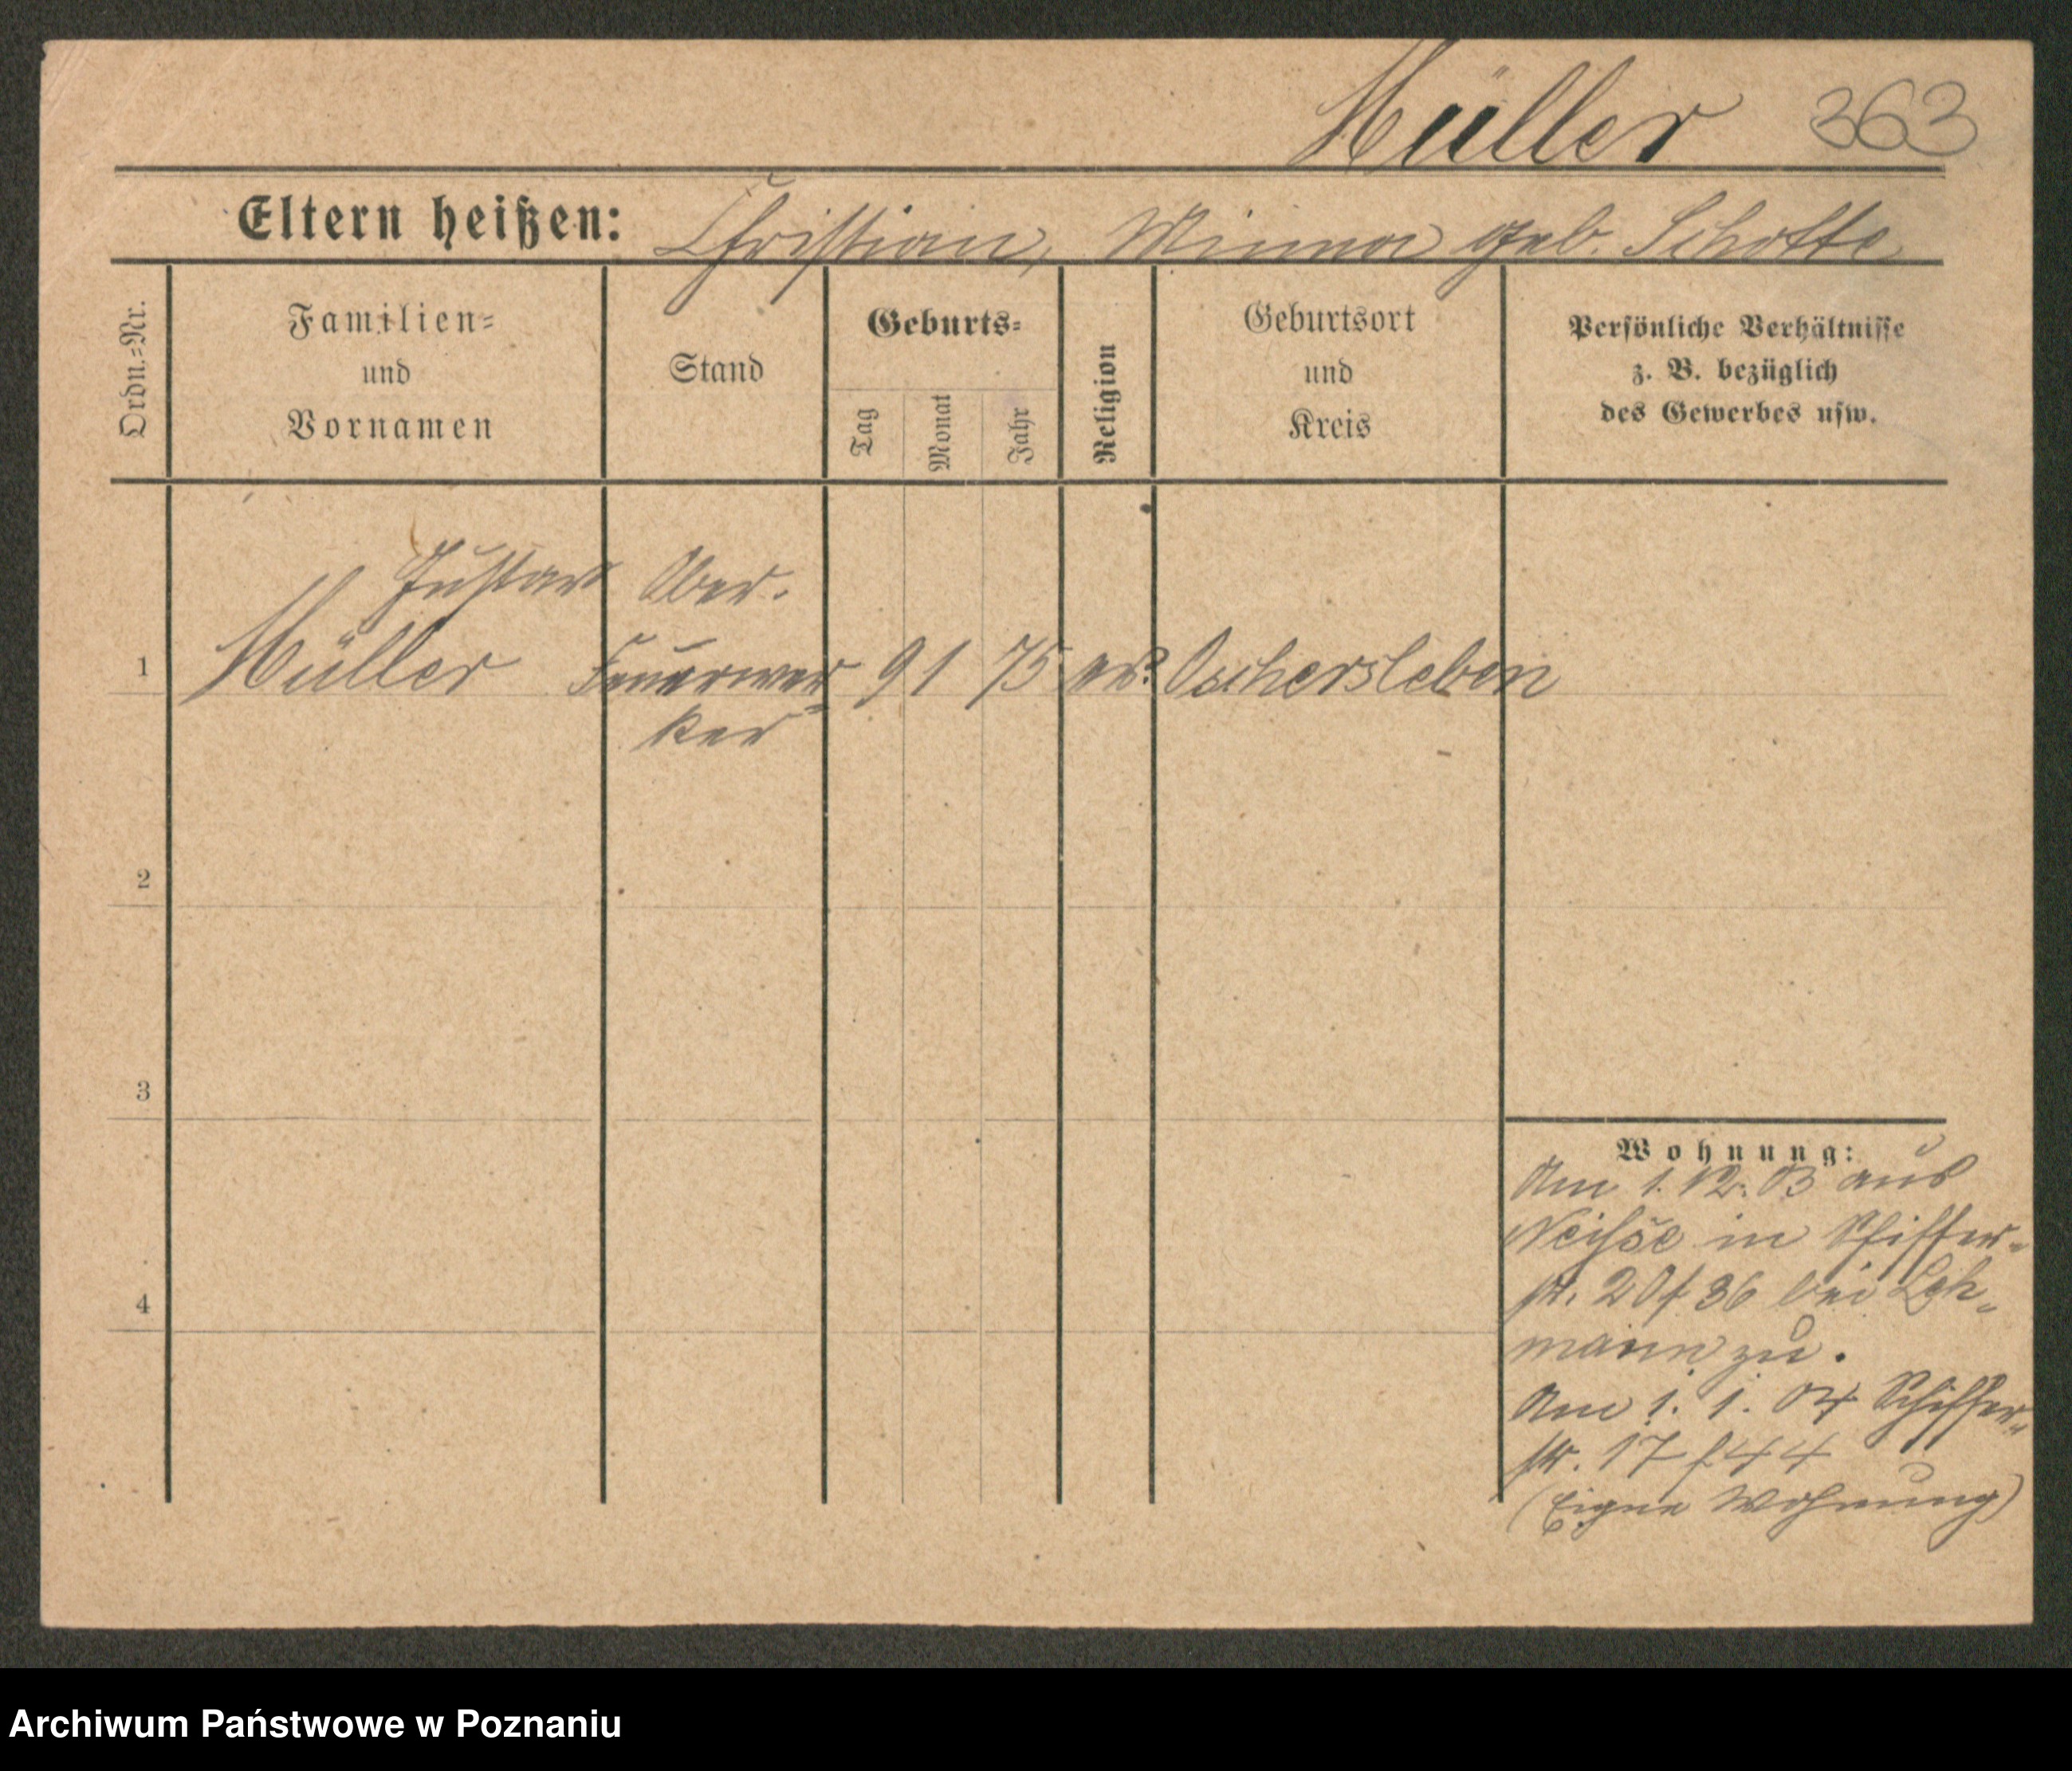 Müller 363
Eltern heißen: Christian, Minna geb. Schotte
Ordn.=Nr.
Familien=
und
Vornamen
Stand
Geburts=
Tag
Monat
Jahr
Religion
Geburtsort
und
Kreis
Persönliche Verhältnisse
z. B. bezüglich
des Gewerbes usw.
Gustav Ober.
1 Müller Feuerwer 9 1 75 Oschersleben
ker
2
3
4
Wohnung:
Am 1. 12. 03 aus
Neisse in Schiffer-
str. 20 f 36 bei Leh-
mann zu.
Am 1. 1. 04 Schiffer-
str. 17 f 44
(Eigne Wohnung)
Archiwum Państwowe w Poznaniu